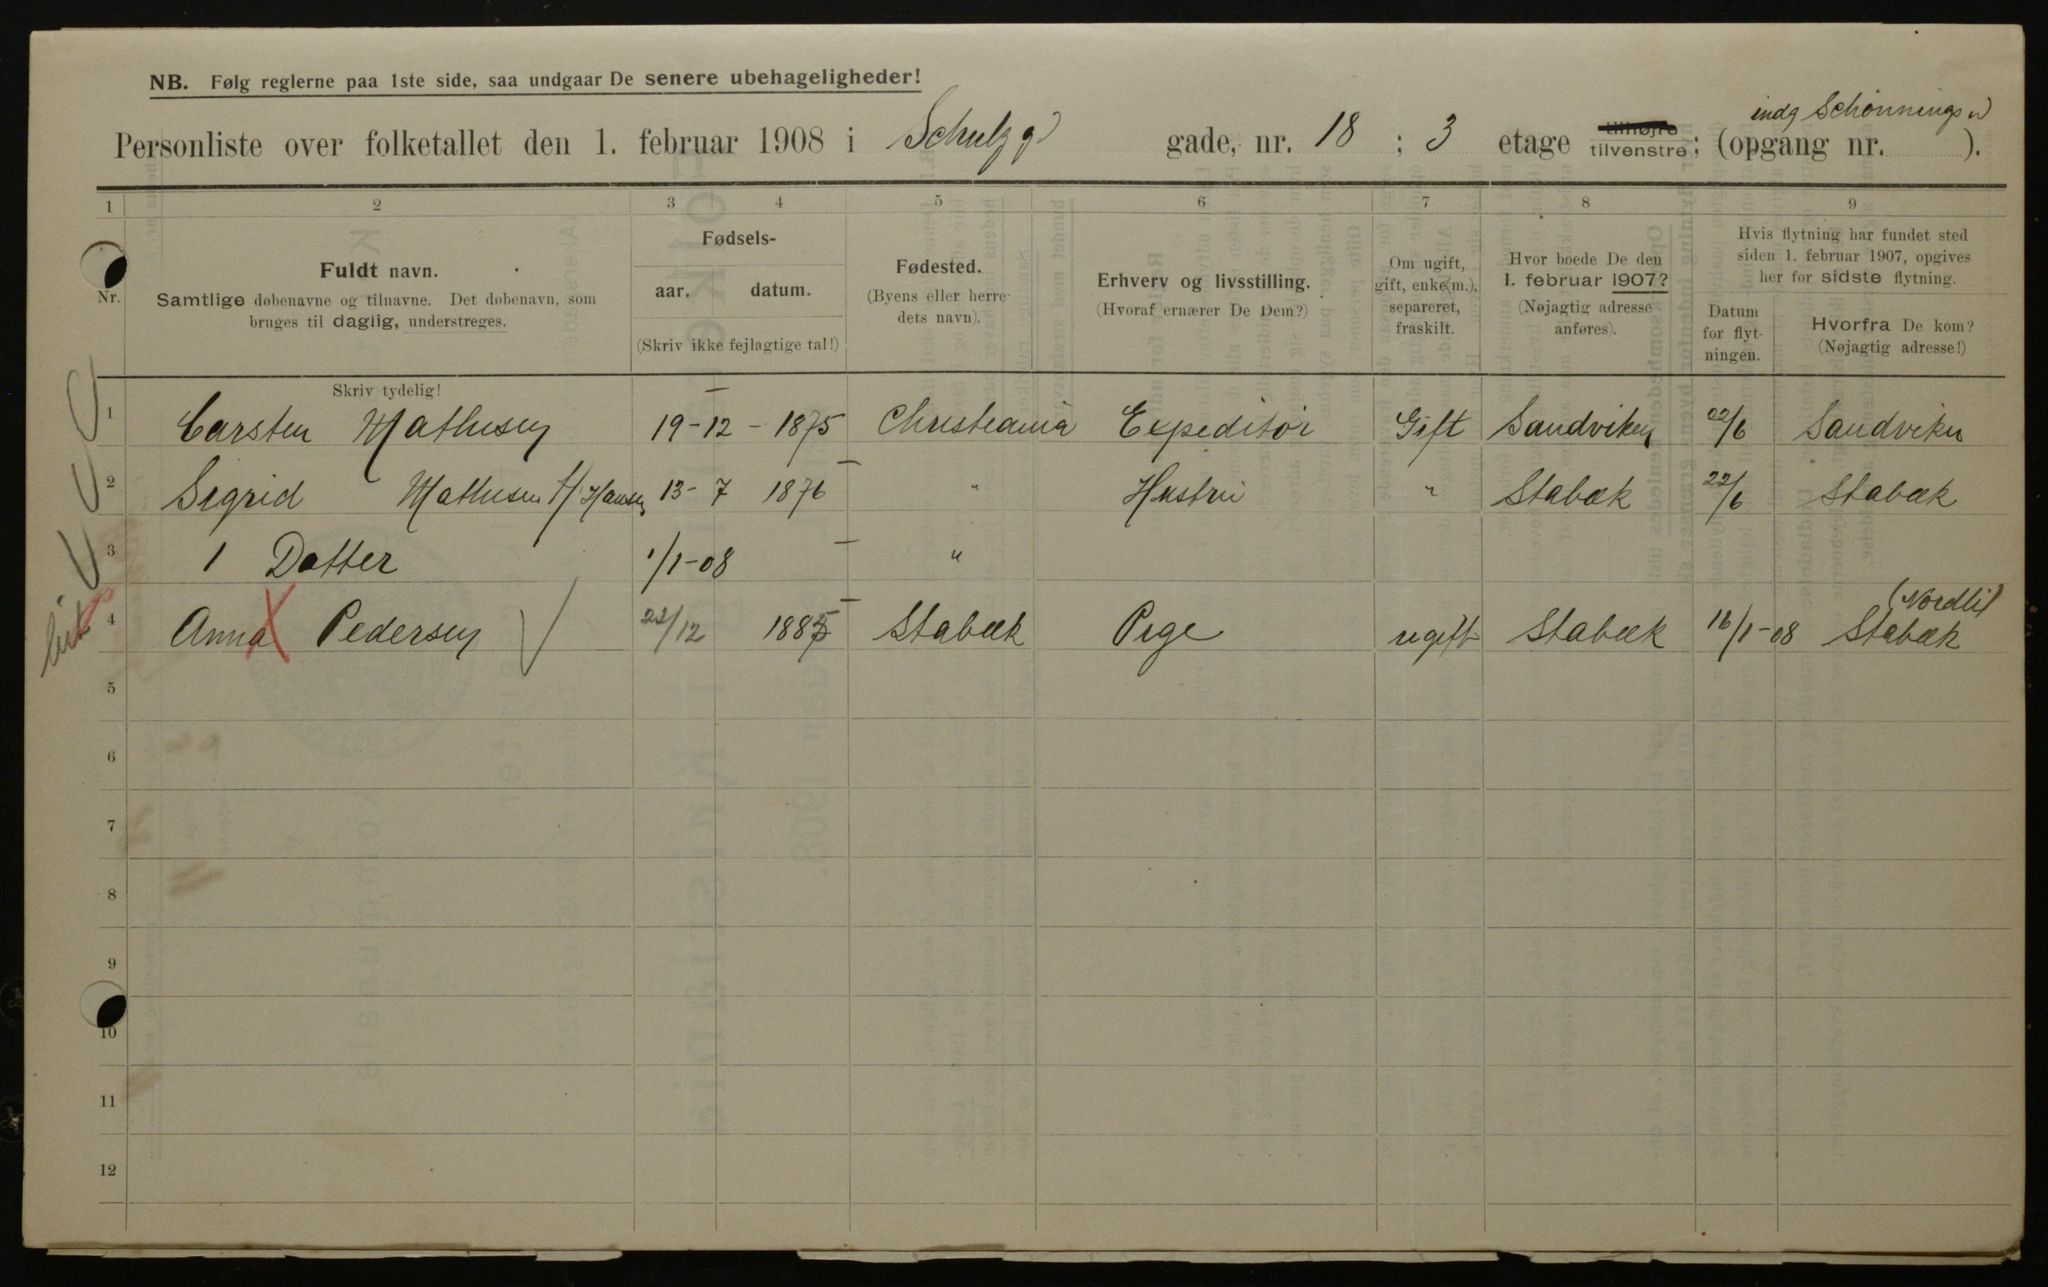 NB. Følg reglerne paa 1ste side, saa undgaar De senere ubehageligheder!
indg Schønnings
Personliste over folketallet den 1. februar 1908 i Schulzg gade, nr. 18 ; 3 etage tilhøjre tilvenstre; (opgang nr. ).
1 2 3 4 5 6 7 8 9
Nr.
Fuldt navn.
Samtlige døbenavne og tilnavne. Det døbenavn, som
bruges til daglig, understreges.
Skriv tydelig!
Fødsels-
aar. datum.
(Skriv ikke fejlagtige tal!)
Fødested.
(Byens eller herre-
dets navn).
Erhverv og livsstilling.
(Hvoraf ernærer De Dem?)
Om ugift,
gift, enke(m.),
separeret,
fraskilt.
Hvor boede De den
1. februar 1907?
(Nøjagtig adresse
anføres).
Hvis flytning har fundet sted
siden 1. februar 1907, opgives
her for sidste flytning.
Datum
for flyt-
ningen.
Hvorfra De kom?
(Nøjagtig adresse!)
1 Carsten Mathesen 19-12-1875 Christeania Expeditør Gift Sandviken 22/6 Sandviken
2 Sigrid Mathesen f/ Hansen 13-7 1876 " Hustru " Stabæk 22/6 Stabæk
3 1 Datter 1/1-08 "
(Nordli)
4 Anna Pedersen 22/12 1885 Stabæk Pige ugift Stabæk 16/1-08 Stabæk
5
6
7
8
9
10
11
12